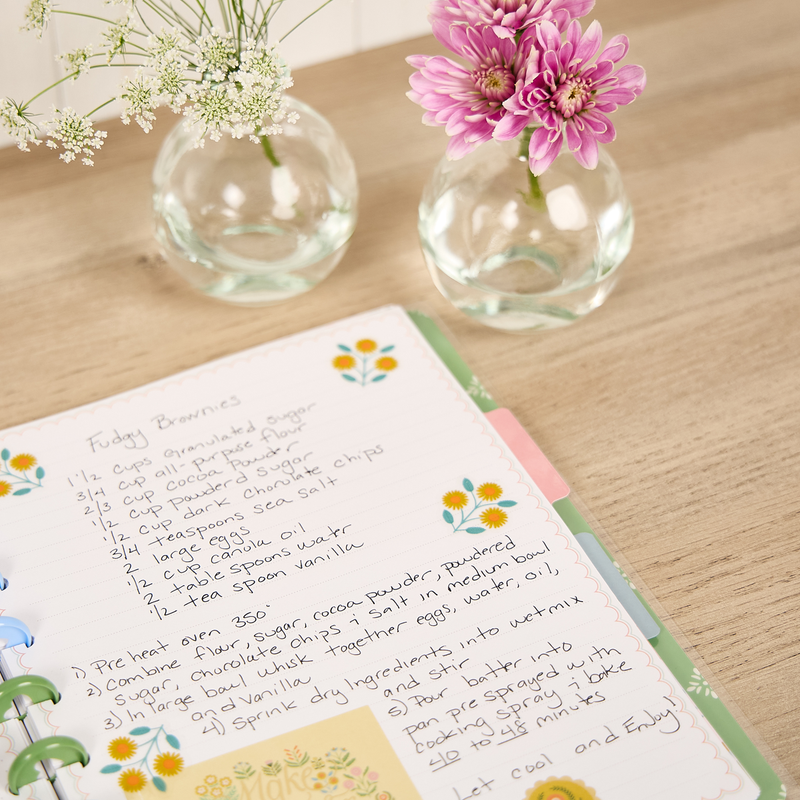 Fudgy Brownies
1 1/2 cups granulated sugar
3/4 cup all-purpose flour
2/3 cup cocoa powder
1/2 cup powderd sugar
1/2 cup dark chorolate chips
3/4 teaspoons sea salt
2 large eggs
1/2 cup canola oil
2 table spoons water
1/2 tea spoon vanilla
1) Pre heat oven 350°
2) Combine flour, sugar, cocoa powder, powdered
sugar, chorolate chips & salt in medium bowl
3) In large bowl whisk together eggs, water, oil,
and vanilla
4) Sprink dry Ingredients into wet mix
and stir
5) Pour batter into
pan pre sprayed with
cooking spray & bake
40 to 48 minutes
Let cool and Enjoy!
Make